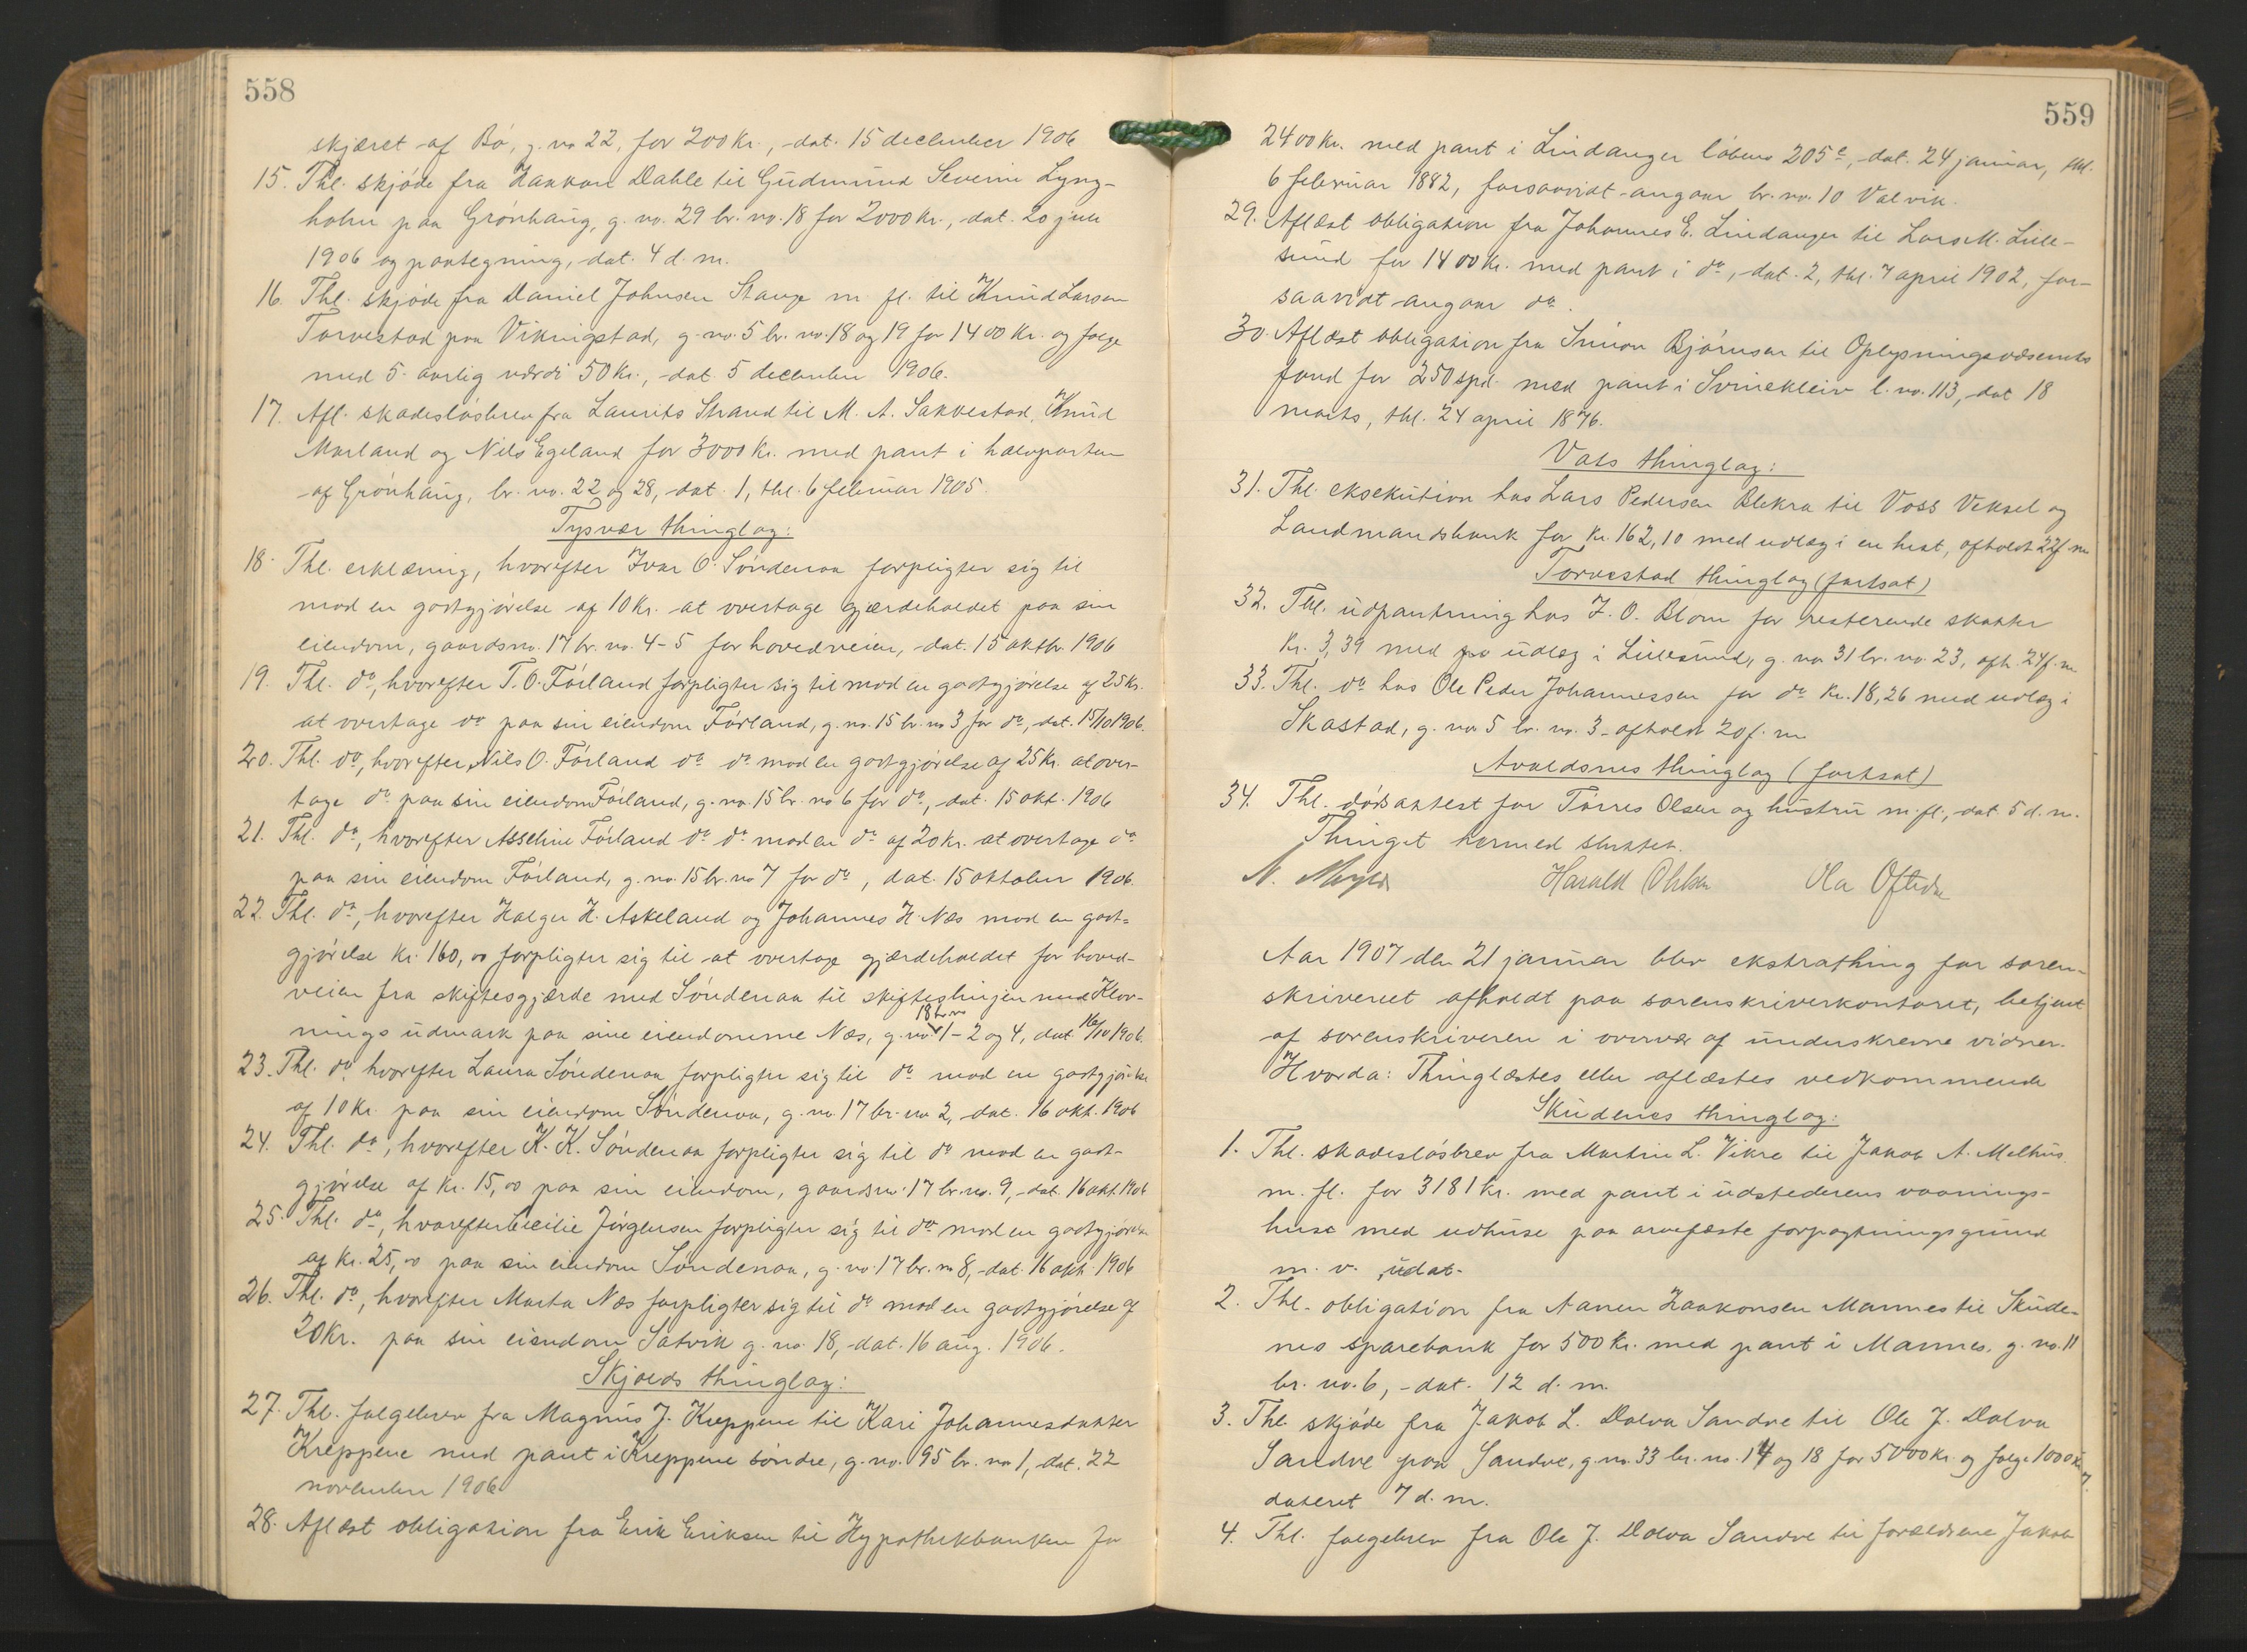 558
skjæret af Bø, g. no 22, for 200 Kr., dat. 15 december 1906
15. Thl. skjøde fra Haakon Dahle til Gudmund Severin Lyng-
holm paa Grønhaug, g. no. 29 br. no. 18 for 2000 Kr., dat. 20 juli
1906 og paategning, dat. 4 d. m.
16. Thl. skjøde fra Daniel Johnsen Stange m. fl. til Knud Larsen
Torvestad paa Vikingstad, g. no. 5 br. no. 18 og 19 for 1400 Kr. og folge
med 5 aarlig værdi 50 Kr., dat. 5 december 1906.
17. Afl. skadesløsbrev fra Laurits Strand til M. A. Sakkestad, Knud
Morland og Nils Egeland for 3000 Kr. med pant i halvparten
af Grønhaug, br. no. 22 og 28, dat. 1, thl. 6 februar 1905.
Tysvær thinglag:
18. Thl. erklæring, hvorefter Ivar O. Søndenaa forpligter sig til
mod en godtgjørelse af 10 Kr. at overtage gjærdeholdet paa sin
eiendom, gaardsno. 17 br. no. 4-5 for hovedveien, dat. 15 oktbr. 1906
19. Thl. do, hvorefter T. O. Førland forpligter sig til mod en godtgjørelse af 25 Kr.
at overtage do paa sin eiendom Førland, g. no. 15 br. no 3 for do, dat. 15/10 1906.
20. Thl. do, hvorefter Nils O. Førland do do mod en godtgjørelse af 25 Kr. at over-
tage do paa sin eiendom Førland, g. no. 15 br. no 6 for do, dat. 15 okt. 1906
21. Thl. do, hvorefter Asseline Førland do do mod en do af 20 Kr. at overtage do
paa sin eiendom Førland, g. no. 15 br. no 7 for do, dat. 15 oktober 1906.
22. Thl. do, hvorefter Holger H. Askeland og Johannes H. Næs mod en godt-
gjørelse Kr. 160,00 forpligter sig til at overtage gjærdeholdet for hoved-
veien fra skiftesgjærde med Søndenaa til skifteslinjen med Klov-
nings udmark paa sine eiendomme Næs, g. no 18 br. no 1-2 og 4, dat. 16/10 1906.
23. Thl. do, hvorefter Laura Søndenaa forpligter sig til do mod en godtgjørelse
af 10 Kr. paa sin eiendom Søndenaa, g. no. 17 br. no 2, dat. 16 okt. 1906
24. Thl. do, hvorefter K. K. Søndenaa forpligter sig til do mod en godt-
gjørelse af Kr. 15,00 paa sin eiendom, gaardsno. 17 br. no. 9, dat. 16 okt. 1906
25. Thl. do, hvorefter Cecilie Jørgensen forpligter sig til do mod en godtgjørelse
af Kr. 25,00 paa sin eiendom Søndenaa, g. no. 17 br. no 8, dat. 16 okt. 1906
26. Thl. do, hvorefter Marta Næs forpligter sig til do mod en godtgjørelse af
20 Kr. paa sin eiendom Satvik g. no. 18, dat. 16 aug. 1906.
Skjolds thinglag:
27. Thl. folgebrev fra Magnus J. Kreppene til Kari Johannesdatter
Kreppene med pant i Kreppene søndre, g. no. 95 br. no 1, dat. 22
november 1906
28. Aflæst obligation fra Erik Eriksen til Hypothekbanken for
559
2400 Kr. med pant i Lindanger løbeno 205c, dat. 24 januar, thl.
6 februar 1882, forsaavidt angaar br. no. 10 Valvik.
29. Aflæst obligation fra Johannes E. Lindanger til Lars M. Lille-
sund for 1400 Kr. med pant i do, dat. 2, thl. 7 april 1902, for-
saavidt angaar do.
30. Aflæst obligation fra Simon Bjørnsen til Oplysningsvæsenets
fond for 250 spd. med pant i Svinekleiv l. no. 113, dat 18
marts, thl. 24 april 1876.
Vats thinglag:
31. Thl. eksekution hos Lars Pedersen Blikra til Voss Veksel og
Landmandsbank for Kr. 162,10 med udlæg i en hest, afholdt 22 f. m
Torvestad thinglag (fortsat)
32. Thl. udpantning hos J. O. Blom for resterende skatter
Kr. 3,39 med udlæg i Lillesund, g. no 31 br. no. 23, afh. 24 f. m
33. Thl. do hos Ole Peder Johannessen for do Kr. 18,26 med udlæg i
Skastad, g. no 5 br. no. 3 afholdt 20 f. m
Avaldsnes thinglag (fortsat)
34. Thl. dødsattest for Tørres Olsen og hustru m. fl., dat. 5 d. m.
Thinget hermed sluttet.
Harald Ohlsen Ola Oftedal
Aar 1907 den 21 januar blev ekstrathing for soren-
skriveriet afholdt paa sorenskriverkontoret, betjent
af sorenskriveren i overvær af underskrevne vidner.
Hvorda: Thinglæstes eller aflæstes vedkommende
Skudenes thinglag:
1. Thl. skadesløsbrev fra Martin L. Vikre til Jakob A. Melhus
m. fl. for 3181 Kr. med pant i udstederens vaanings-
huse med udhuse paa arvefæste forpagtningsgrund
m. v. udat.
2. Thl. obligation fra Aanen Haakonsen Mannes til Skude-
nes sparebank for 500 Kr. med pant i Mannes, g. no. 11
br. no. 6, dat. 12 d. m.
3. Thl skjøde fra Jakob L. Dalva Sandve til Ole J. Dalva
Sandve paa Sandve, g. no. 33 br. no. 14 og 18 for 5000 Kr. og folge 1000 Kr.
dateret 7 d. m.
4. Thl. folgebrev fra Ole J. Dalva Sandve til forældrene Jakob